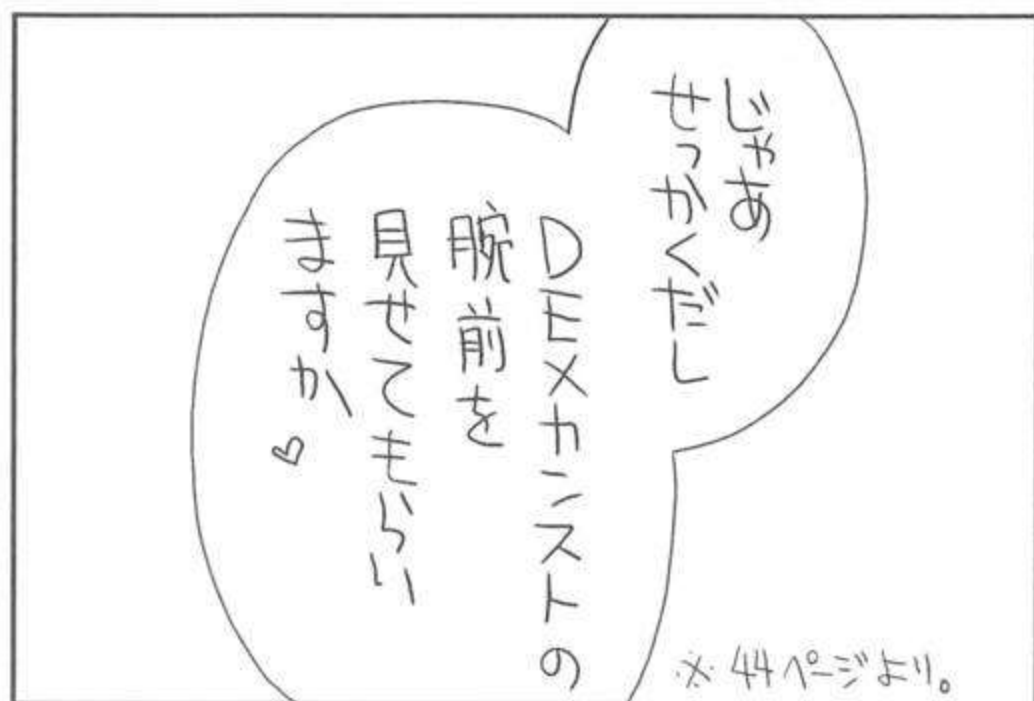 じゃあ
せっかくだし
DEXカンストの
腕前を
見せてもらい
ますか♡
※44ページより。